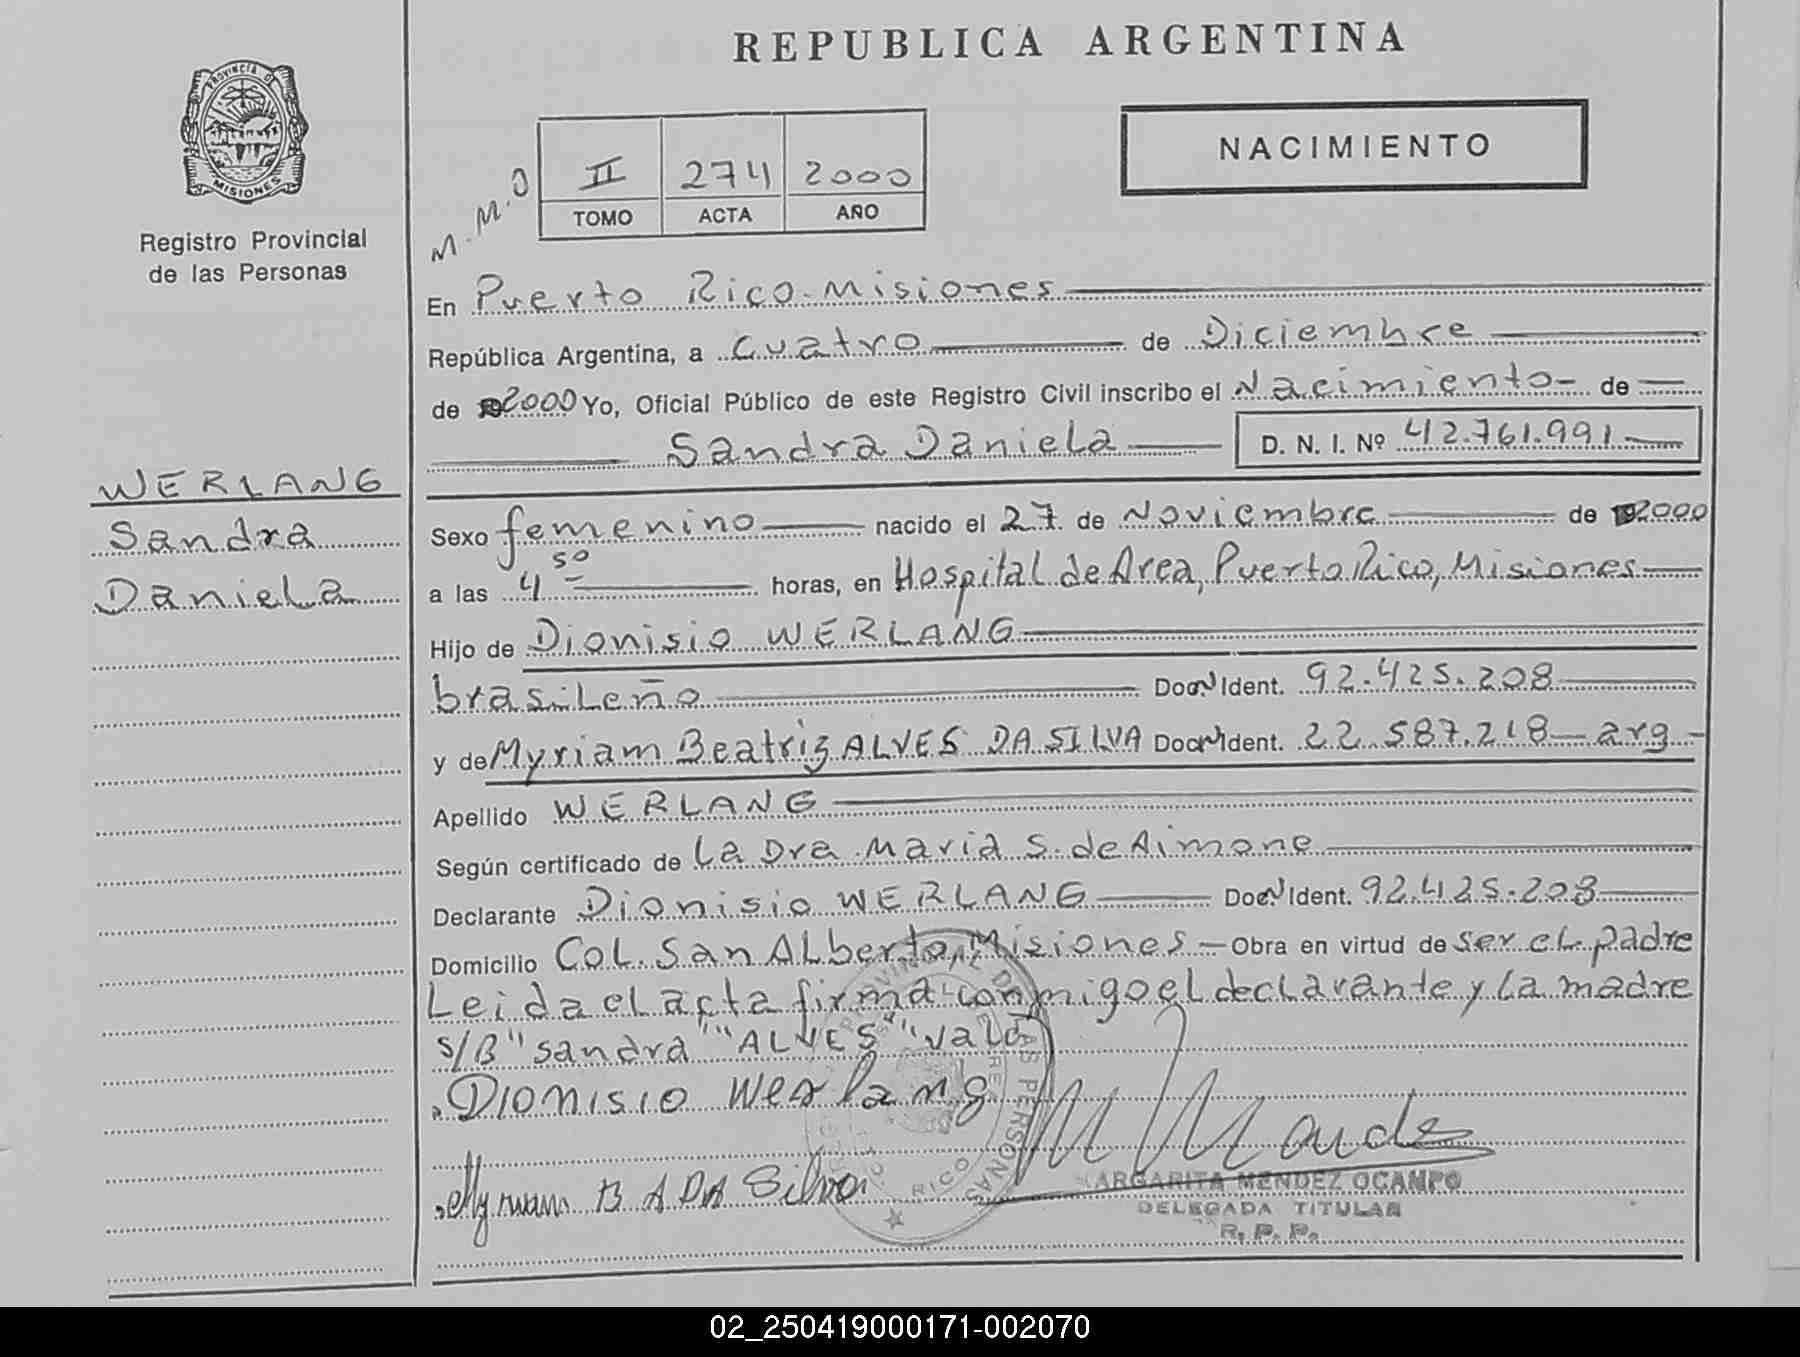 REPUBLICA ARGENTINA
PROVINCIA DE
MISIONES
Registro Provincial
de las Personas
NACIMIENTO
M.M.O
II 274 2000
TOMO ACTA AÑO
En Puerto Rico. Misiones
República Argentina, a cuatro de Diciembre
de 2000 Yo, Oficial Público de este Registro Civil inscribo el Nacimiento- de
Sandra Daniela D. N. I. Nº 42.761.991
WERLANG
Sandra
Daniela
Sexo femenino nacido el 27 de Noviembre de 2000
a las 4 50 horas, en Hospital de Area, Puerto Rico, Misiones
Hijo de Dionisio WERLANG
brasileño Doc Ident. 92.425.208
y de Myriam Beatriz ALVES DA SILVA Doc Ident. 22.587.218 - arg -
Apellido WERLANG
Según certificado de La Dra. Maria S. de Aimone
Declarante Dionisio WERLANG Doc Ident. 92.425.208
Domicilio Col. San Alberto, Misiones - Obra en virtud de ser el padre
Leida el acta firma conmigo el declarante y La madre
S/B "sandra" "ALVES" "vale
Dionisio Werlang
Myriam B A DA Silva
MARGARITA MENDEZ OCAMPO
DELEGADA TITULAR
R. P. P.
02_250419000171-002070